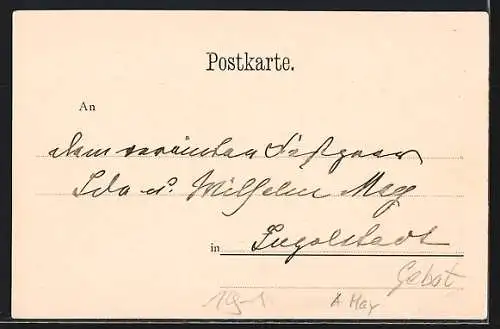 Postkarte.
An
dem vereinten Festpaar
Ida u. Wilhelm May
in Ingolstadt
Gebot
A May